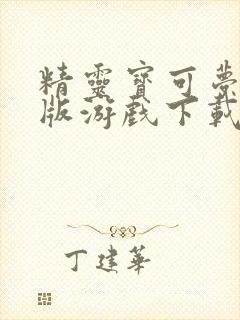 精靈寶可夢
版游戲下載
丁建華